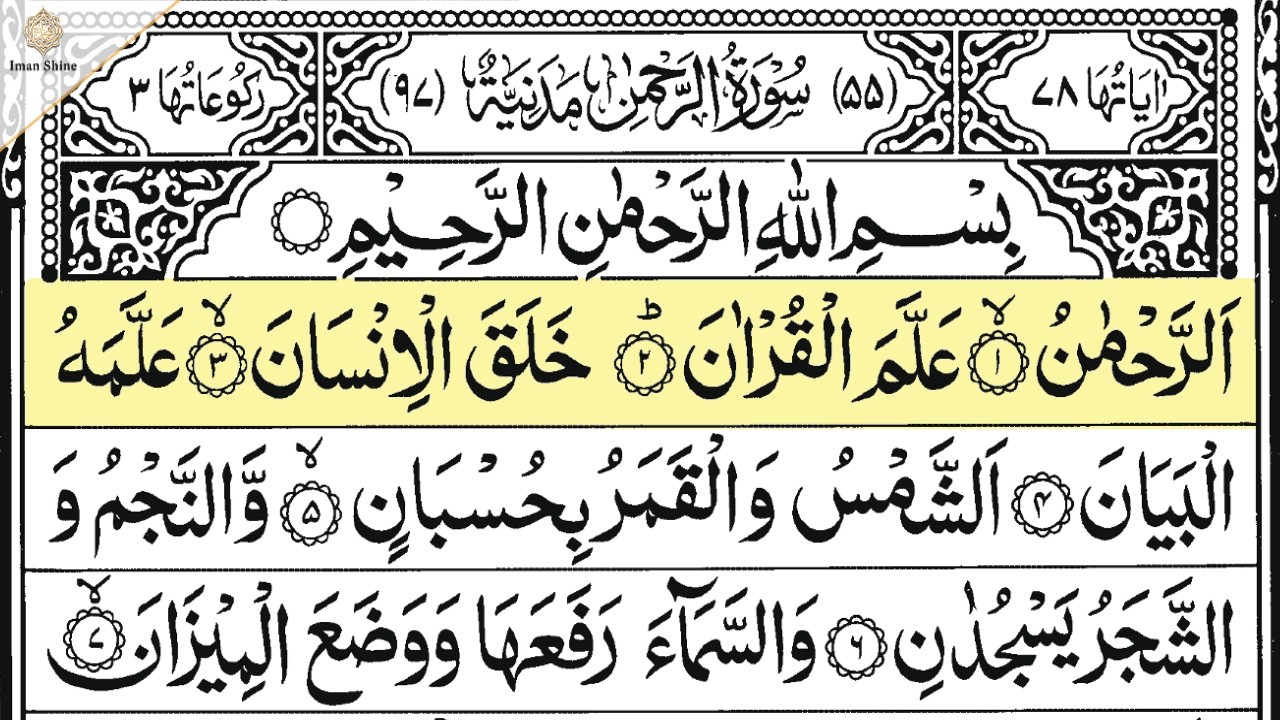 Iman Shine
اٰيَاتُهَا ٧٨
(٥٥) سُوْرَةُ الرَّحْمٰنِ مَدَنِيَّةٌ (٩٧)
رُكُوْعَاتُهَا ٣
بِسْمِ اللّٰهِ الرَّحْمٰنِ الرَّحِيْمِ
اَلرَّحْمٰنُ ۙ ١ عَلَّمَ الْقُرْاٰنَ ؕ ٢ خَلَقَ الْاِنْسَانَ ۙ ٣ عَلَّمَهُ
الْبَيَانَ ٤ اَلشَّمْسُ وَالْقَمَرُ بِحُسْبَانٍ ۙ ٥ وَّالنَّجْمُ وَ
الشَّجَرُ يَسْجُدٰنِ ٦ وَالسَّمَآءَ رَفَعَهَا وَوَضَعَ الْمِيْزَانَ ۙ ٧